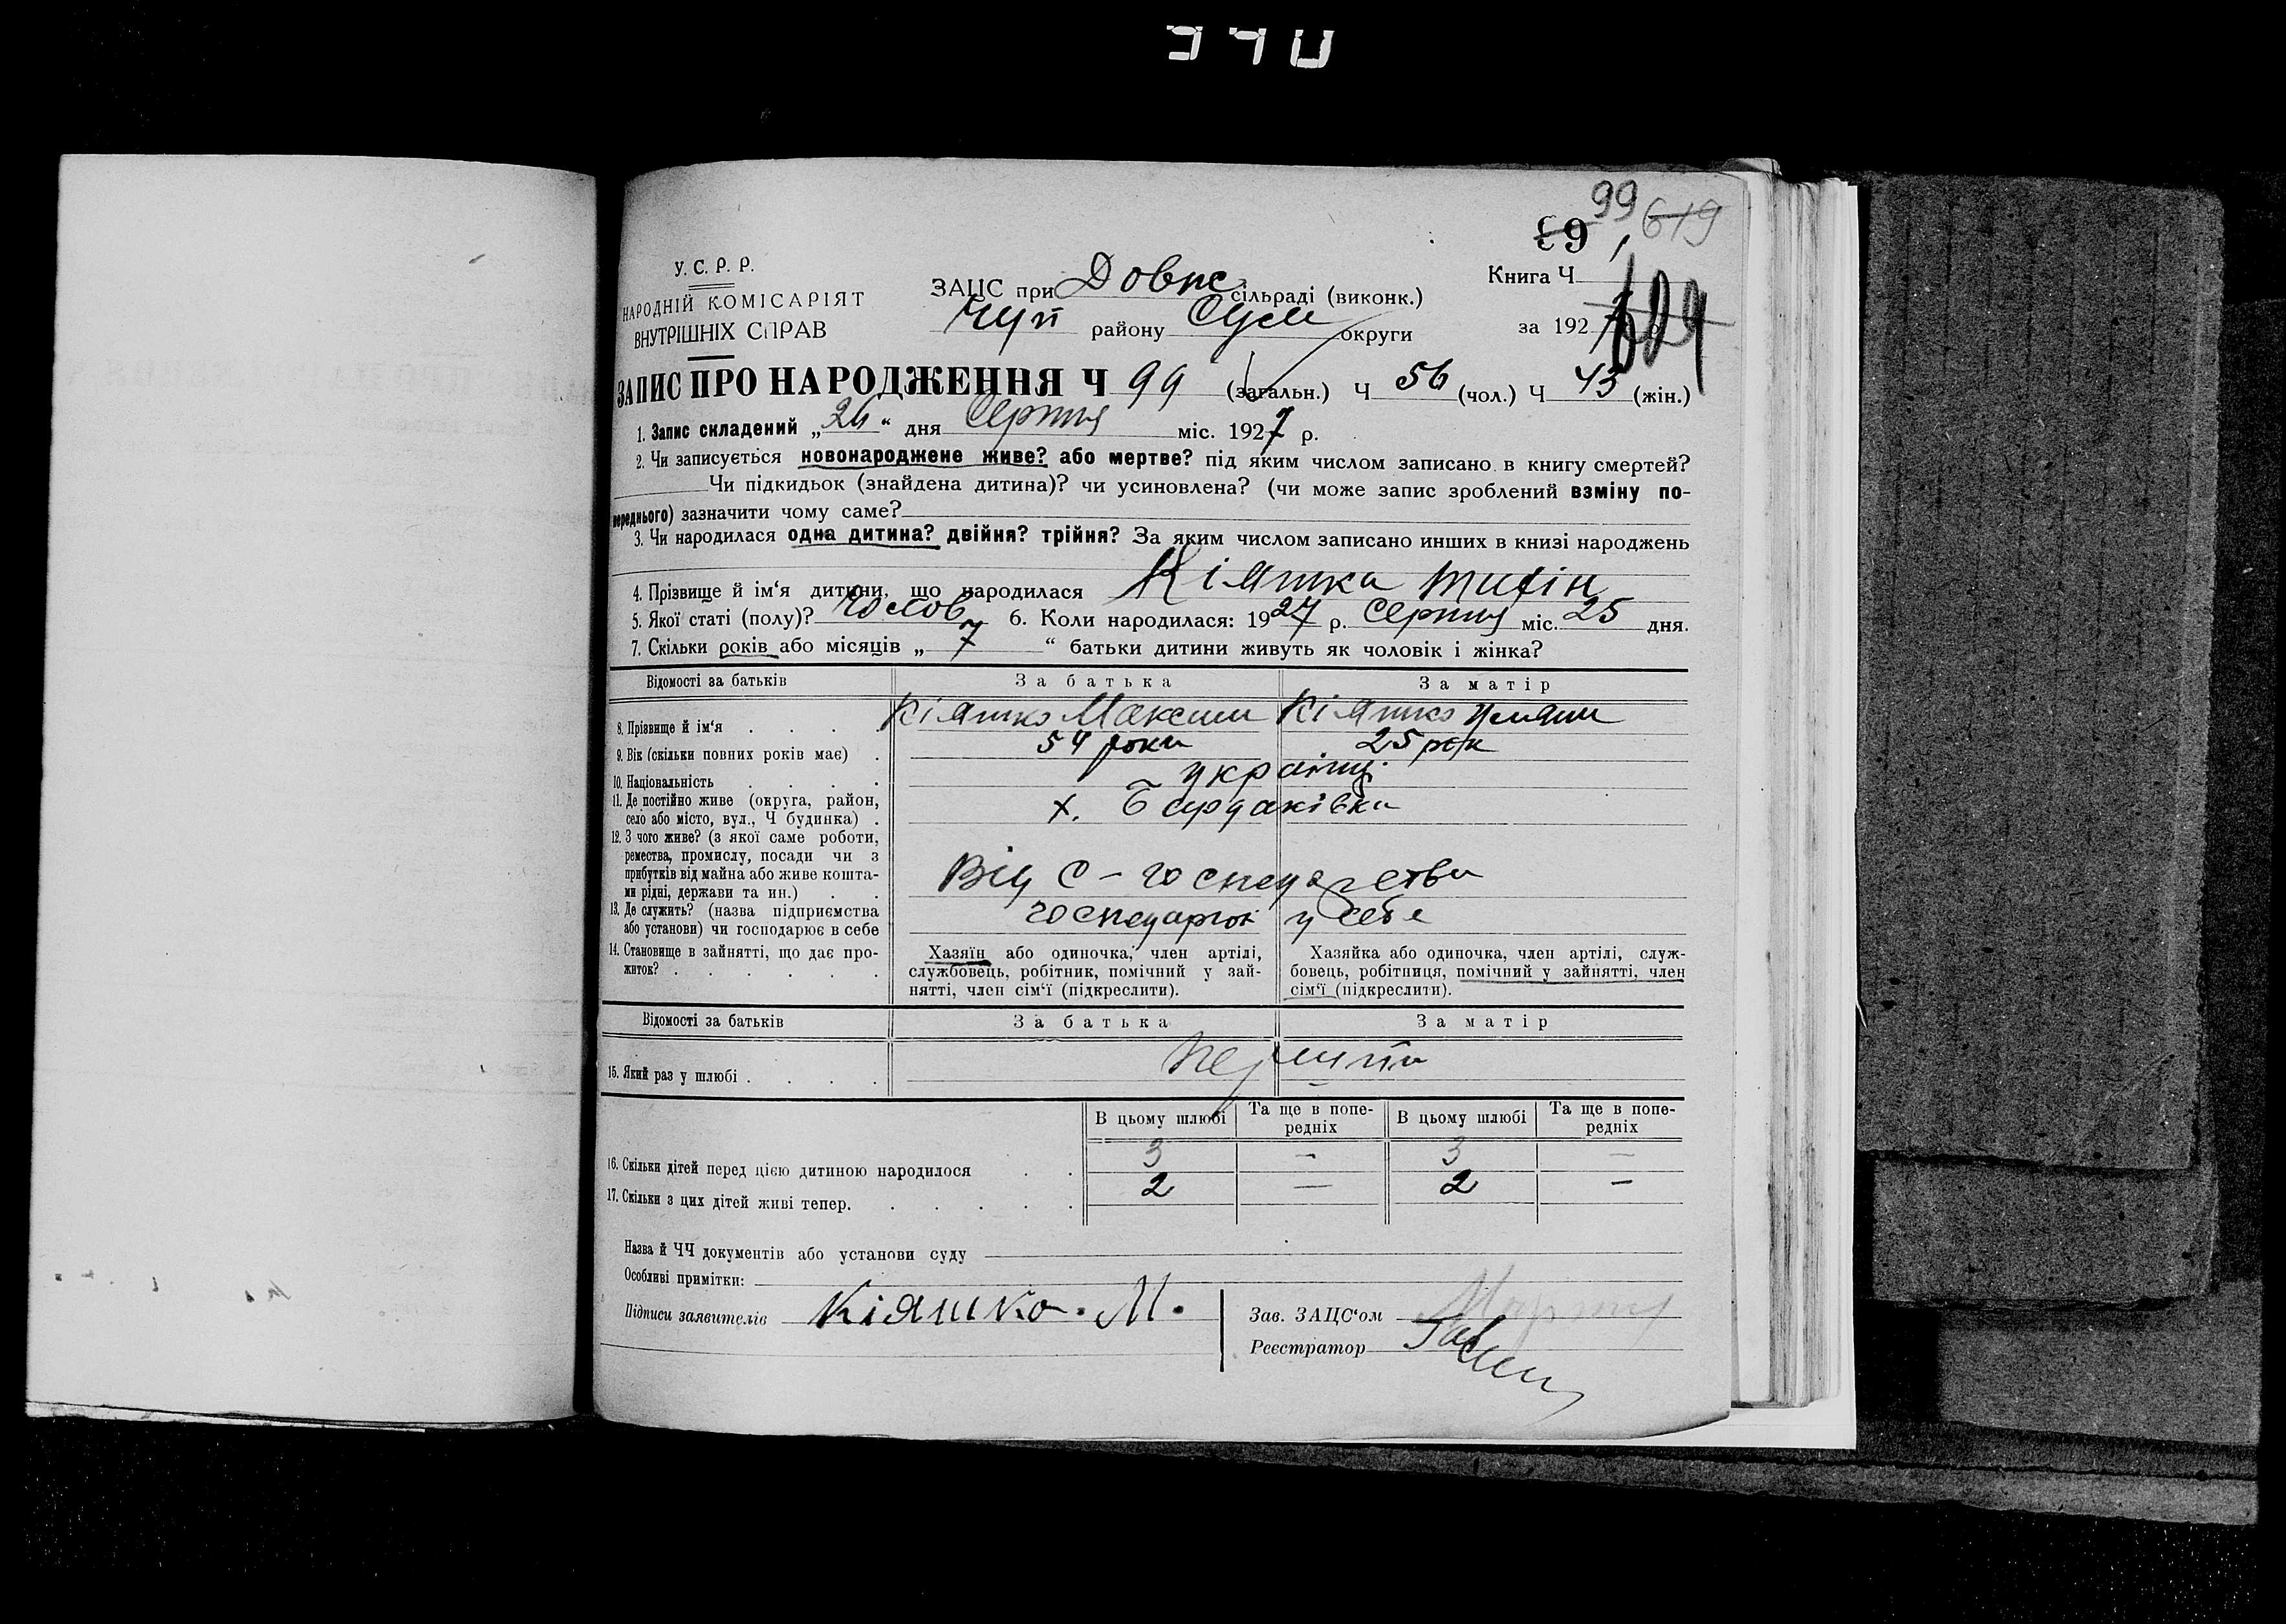 370
99
69
619
У. С. Р. Р.
НАРОДНІЙ КОМІСАРІЯТ
ВНУТРІШНІХ СПРАВ
ЗАЦС при Довж сільраді (виконк.)
Чуп району Суми округи
Книга Ч
за 1927
ЗАПИС ПРО НАРОДЖЕННЯ Ч 99 (загальн.) Ч 56 (чол.) Ч 43 (жін.)
1. Запис складений „26“ дня Серпня міс. 1927 р.
2. Чи записується новонароджене живе? або мертве? під яким числом записано в книгу смертей?
Чи підкидьок (знайдена дитина)? чи усиновлена? (чи може запис зроблений взміну по-
переднього) зазначити чому саме?
3. Чи народилася одна дитина? двійня? трійня? За яким числом записано инших в книзі народжень
4. Прізвище й ім‘я дитини, що народилася Кіяшка
5. Якої статі (полу)? Чолов 6. Коли народилася: 1927 р. Серпня міс. 25 дня.
7. Скільки років або місяців „ 7 “ батьки дитини живуть як чоловік і жінка?
Відомості за батьків За батька За матір
8. Прізвище й ім‘я Кіяшко Максим Кіяшко
9. Вік (скільки повних років має) 54 роки 25 рок
10. Національність україн.
11. Де постійно живе (округа, район,
село або місто, вул., Ч будинка) х. Бурдаківка
12. З чого живе? (з якої саме роботи,
ремества, промислу, посади чи з
прибутків від майна або живе кошта-
ми рідні, держави та ин.) Від С-господарства
13. Де служить? (назва підприємства
або установи) чи господарює в себе господарює у себе
14. Становище в зайнятті, що дає про-
житок?
Хазяїн або одиночка, член артілі,
службовець, робітник, помічний у зай-
нятті, член сім‘ї (підкреслити).
Хазяйка або одиночка, член артілі, служ-
бовець, робітниця, помічний у зайнятті, член
сім‘ї (підкреслити).
Відомості за батьків За батька За матір
15. Який раз у шлюбі
В цьому шлюбі Та ще в попе-
редніх В цьому шлюбі Та ще в попе-
редніх
16. Скільки дітей перед цією дитиною народилося 3 — 3 —
17. Скільки з цих дітей живі тепер. 2 — 2 —
Назва й ЧЧ документів або установи суду
Особливі примітки:
Підписи заявителів Кіяшко. М.
Зав. ЗАЦС‘ом
Реєстратор